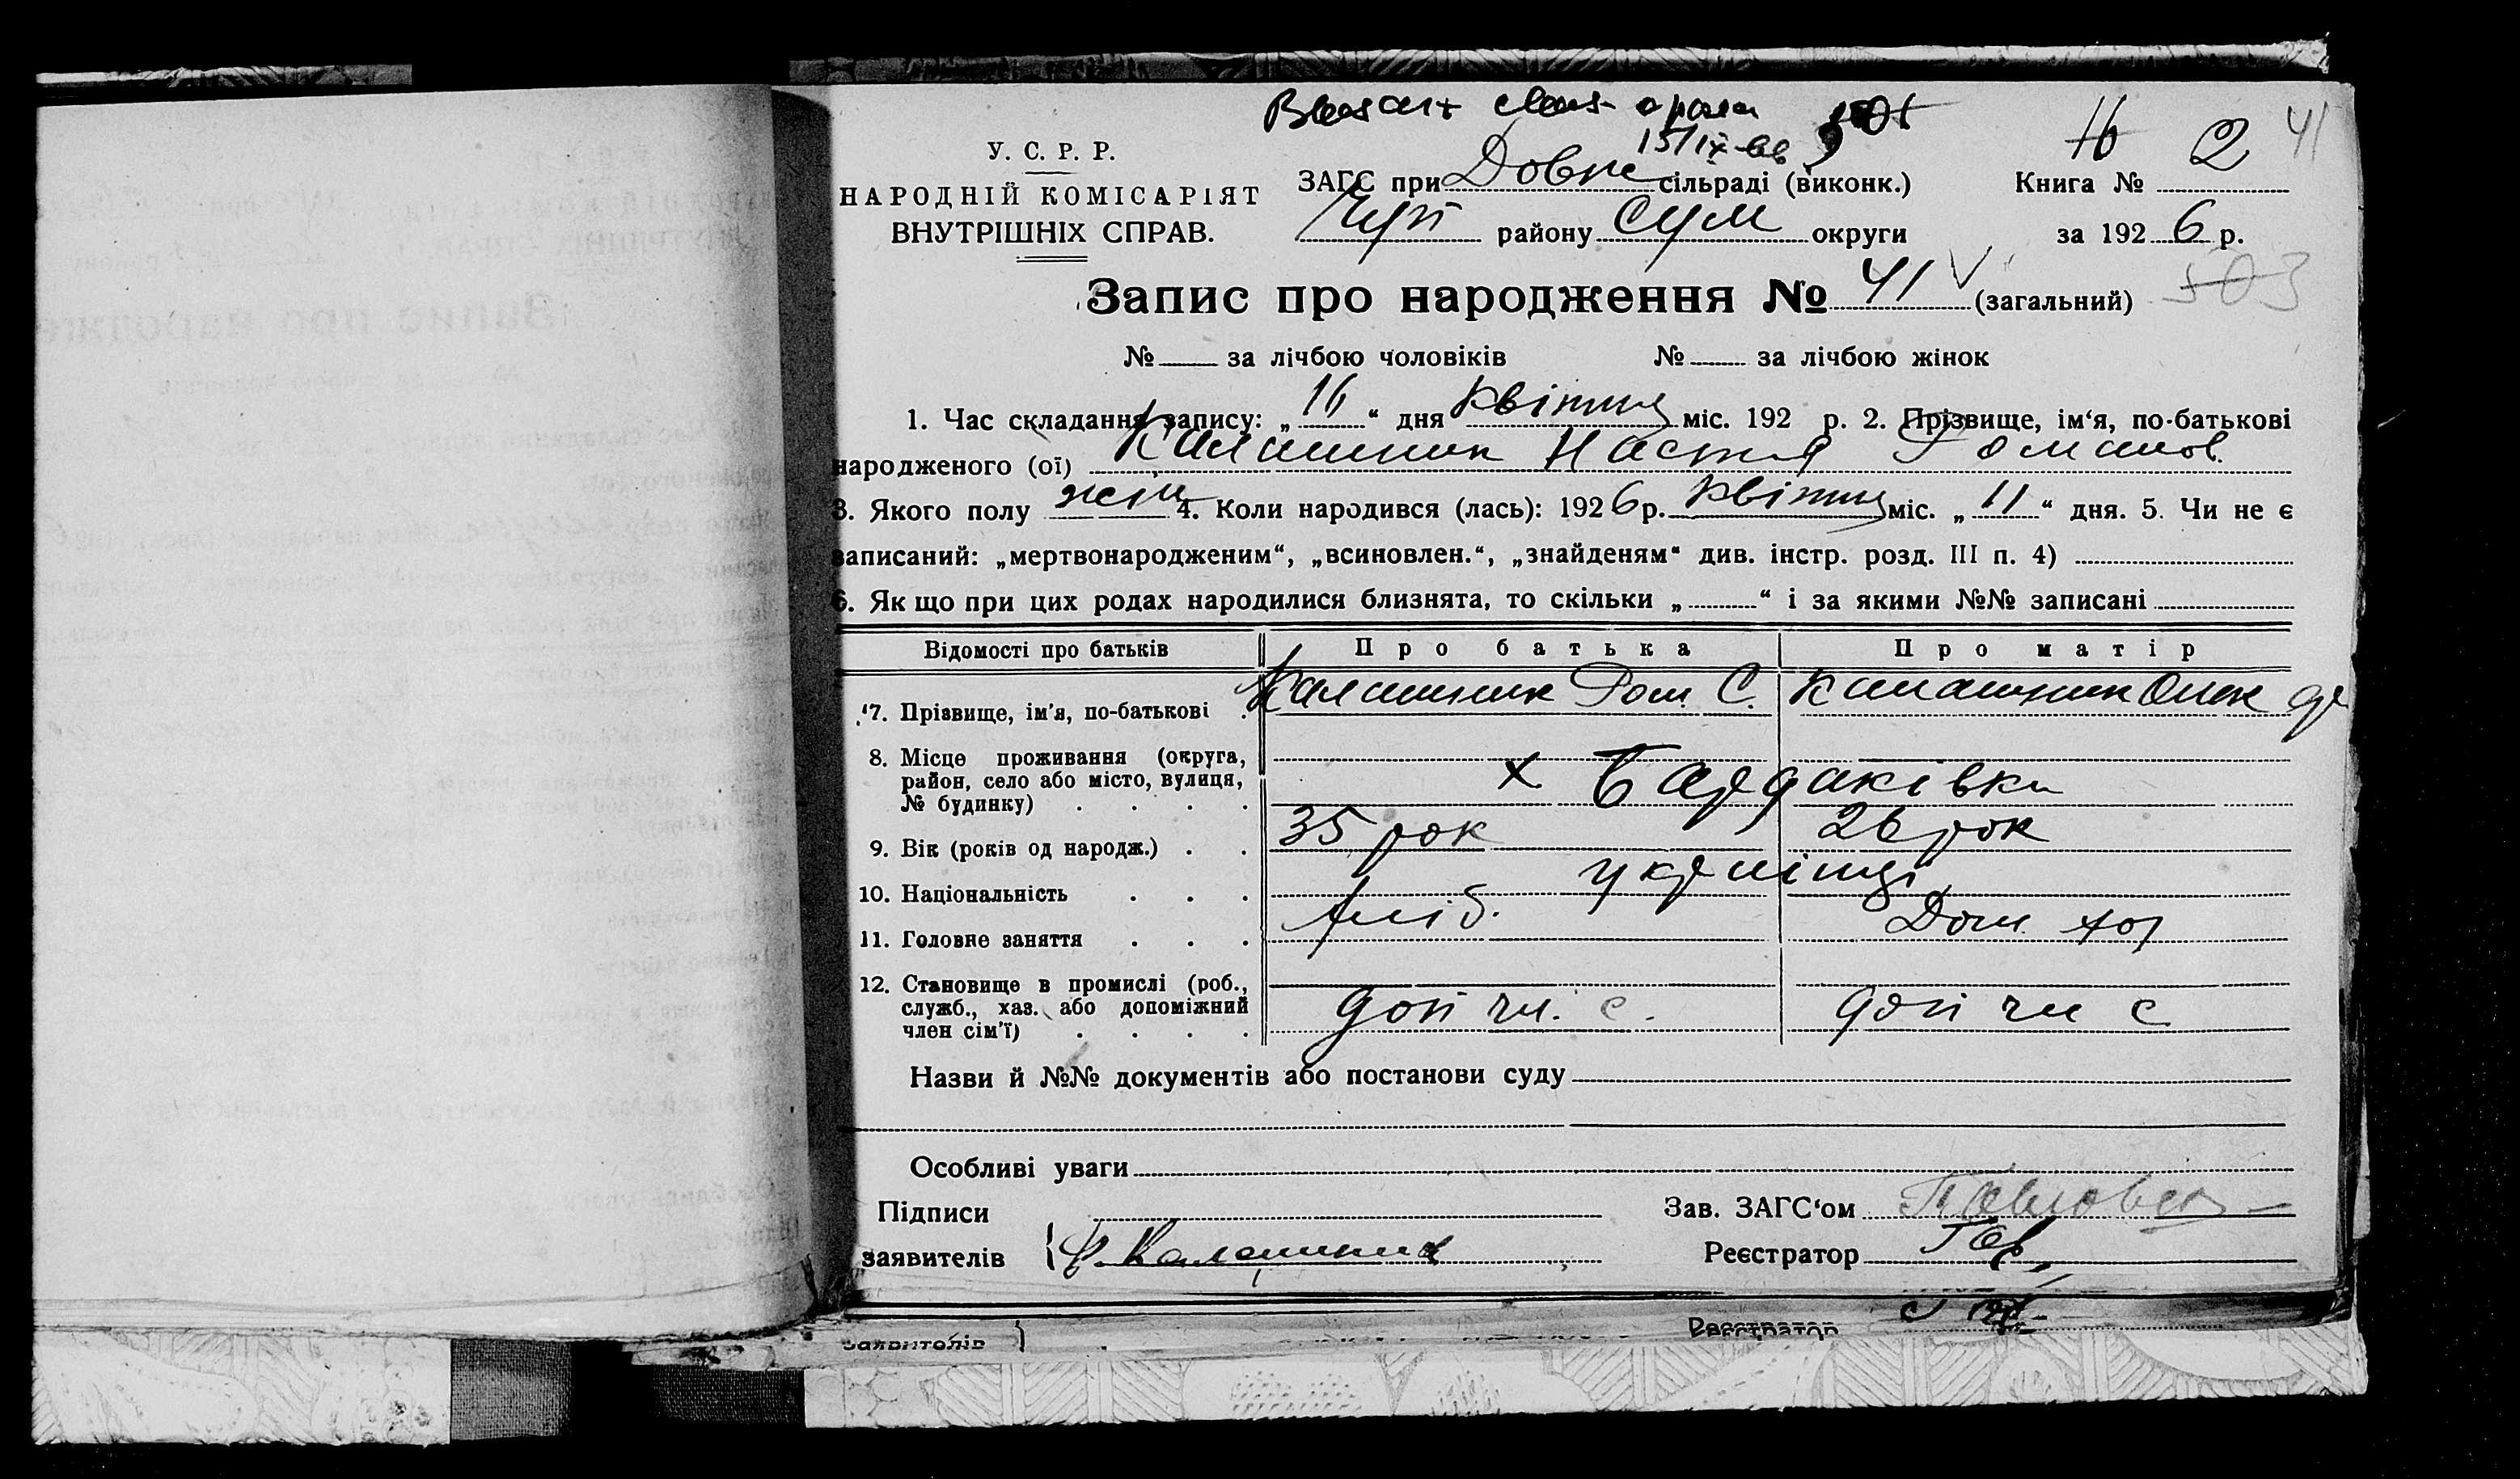 15/IX-66
41
У. С. Р. Р.
НАРОДНІЙ КОМІСАРІЯТ
ВНУТРІШНІХ СПРАВ.
ЗАГС при Довж сільраді (виконк.)
Книга № 2
района Сум округи
за 1926 р.
Запис про народження № 41 (загальний)
503
№ за лічбою чоловіків № за лічбою жінок
1. Час складання запису: „16“ дня квітня міс. 192 р. 2. Прізвище, ім‘я, по-батькові
народженого (ої) Калашник Настя Романов.
3. Якого полу жін 4. Коли народився (лась): 1926 р. квітня міс. „11“ дня. 5. Чи не є
записаний: „мертвонародженим“, „всиновлен.“, „знайденям“ див. інстр. розд. III п. 4)
6. Як що при цих родах народилися близнята, то скільки „ “ і за якими №№ записані
Відомості про батьків Про батька Про матір
7. Прізвище, ім‘я, по-батькові Калашник Ром. С. Калашник
8. Місце проживання (округа,
район, село або місто, вулиця,
№ будинку) х Бардаківка
9. Вік (років од народж.) 35 рок 26 рок
10. Національність українці
11. Головне заняття хліб. Дом. хоз
12. Становище в промислі (роб.,
служб., хаз. або допоміжний
член сім‘ї) доп чл. с. доп чл с
Назви й №№ документів або постанови суду
Особливі уваги
Підписи
заявителів Р. Калашник
Зав. ЗАГС‘ом
Реєстратор
Реєстратор
заявителів